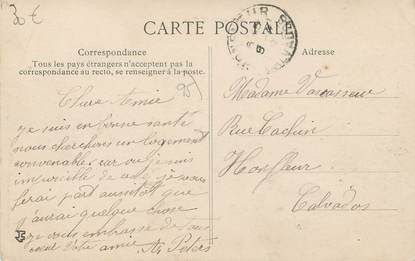 30 €
CARTE POSTALE
Correspondance
Tous les pays étrangers n'acceptent pas la
correspondance au recto, se renseigner à la poste.
Adresse
Chère Amie
je suis en bonne santé
nous cherchons un logement
convenable. car ou je suis
impossible de je vous
ferai part aussitôt que
j'aurai quelque chose
je vous embrasse de tout
coeur Votre amie Peters
Madame Vavasseur
Rue Cachin
Honfleur
Calvados